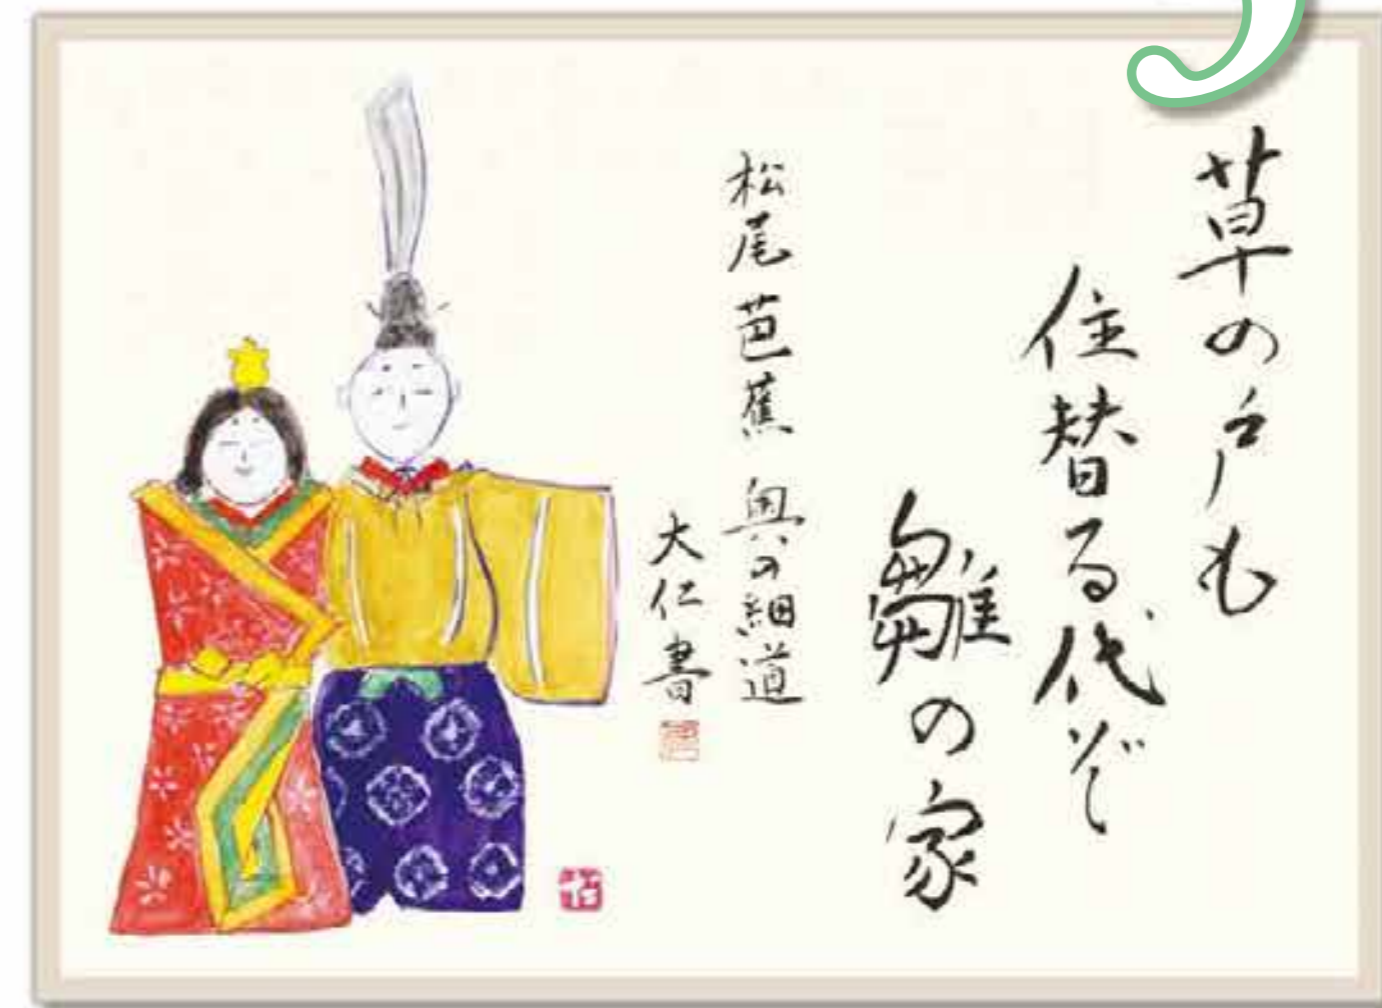 草の戸も
住替る代ぞ
雛の家
松尾芭蕉 奥の細道
大仁書